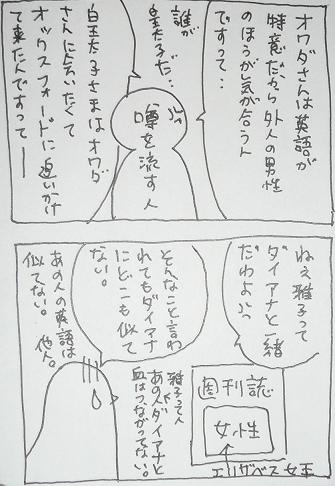 オワダさんは英語が
特意だから外人の男性
のほうが気が合うん
ですって・・
誰が
皇太子だ…
噂を流す人
皇太子さまはオワダ
さんに会いたくて
オックスフォードに追いかけ
て来たんですって――
ねぇ雅子って
ダイアナと一緒
だわよぉ
そんなこと言わ
れてもダイアナ
にどこも似て
ない。
あの人の英語は
似てない。
他人。
雅子って人
あのダイアナと
血はつながってない。
週刊誌
女性
エリザベス女王